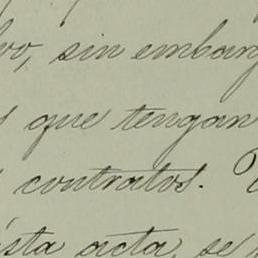 sin embarg
que tengan
contratos.
sta acta, se